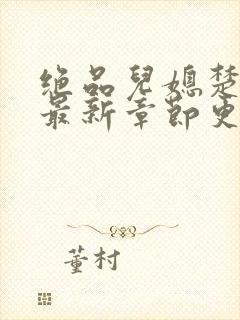 绝品兒媳楚
最新章節史
董村